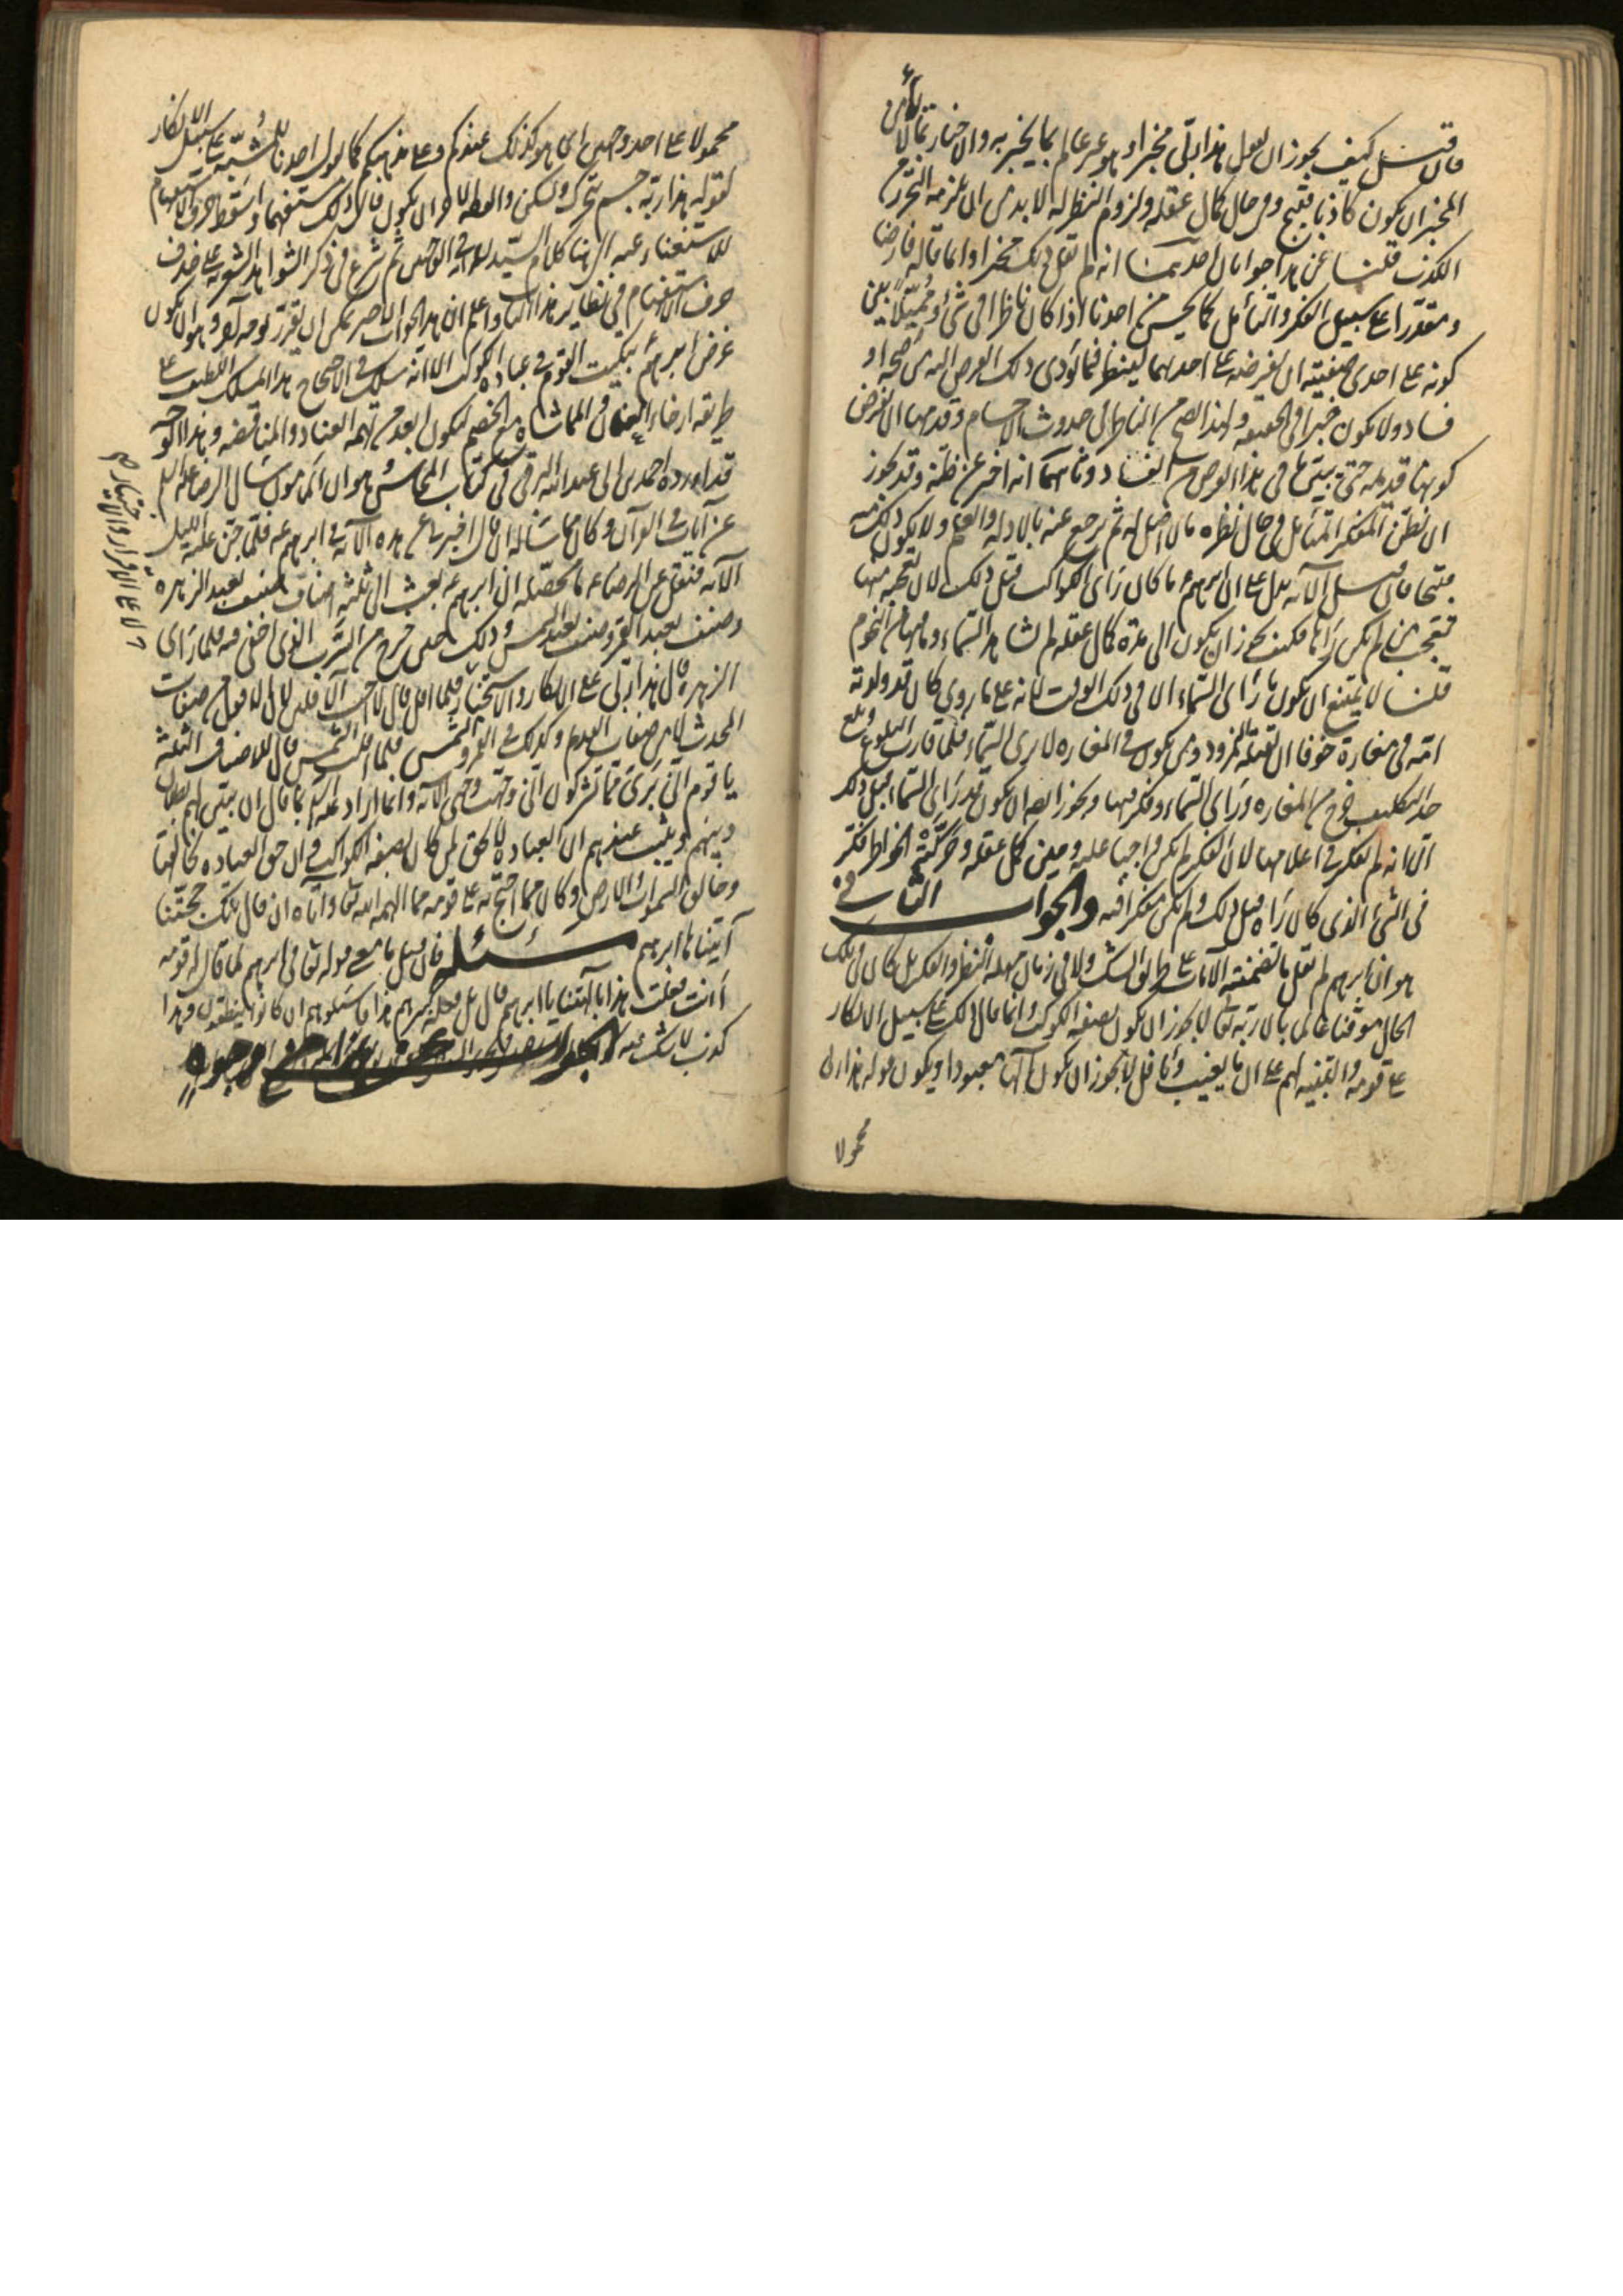 فان قيل كيف يجوز ان يقول هذا ربّى مخبرا وهو غير عالم بما يخبر به والاخبار بما لا يأمن
المخبر ان يكون كاذبا فيه قبيح وفى حال كمال عقله ولزوم النظر له لا بد من ان يلزمه التحرز من
الكذب قلنا عن هذا جوابان احدهما انه لم يقل ذلك مخبرا وانما قاله فارضا
ومقدرا على سبيل الفكر والتأمل كما يحسن من احدنا اذا كان ناظرا فى شئ وممثلا بين
كونه على احدى صفتيه ان يفرضه على احدهما لينظر فيما يؤدى ذلك الفرض اليه من صحة او
فساد ولا يكون مخبرا فى الحقيقة ولهذا يصح من الناظر فى حدوث الاجسام وقدمها ان يفرض
كونها قديمة حتى يتبين ما فى هذا الفرض من الفساد وثانيهما انه اخبر عن ظنه وقد يجوز
ان يظن المفكر المتأمل فى حال نظره ما لا اصل له ثم يرجع عنه بالادلة والعلم ولا يكون ذلك منه
قبيحا فان قيل الآية تدل على ان ابرهيم ع ما كان رأى الكواكب قبل ذلك لان تعجبه منها
تعجب من لم يكن رآها فكيف يجوز ان يكون الى مدة كمال عقله لم يشاهد السماء وما فيها من النجوم
قلنا لا يمتنع ان يكون ما رأى السماء الا فى ذلك الوقت لانه على ما روى كان قد ولدته
امه فى مغارة خوفا ان يقتله النمرود ومن يكون فى المغارة لا يرى السماء فلما قارب البلوغ وبلغ
حد التكليف خرج من المغارة ورأى السماء وفكر فيها ويجوز ايضا ان يكون قد رأى السماء قبل ذلك
الا انه لم يفكر فى اعلامها لان الفكر لم يكن واجبا عليه وحين كمل عقله وحركته الخواطر فكر
فى الشئ الذى كان رآه قبل ذلك ولم يكن مفكرا فيه والجواب الثانى
هو ان ابرهيم لم يقل ما تضمنته الآيات على طريق الشك ولا فى زمان مهلة النظر والفكر بل كان فى تلك
الحال موقنا عالما بان ربه تعالى لا يجوز ان يكون بصفة الكواكب وانما قال ذلك على سبيل الانكار
على قومه والتنبيه لهم على ان ما يغيب ويأفل لا يجوز ان يكون الها معبودا ويكون قوله هذا ربى
محمولا
محمولا على احد وجهين اى هو كذلك عندكم وعلى مذهبكم كما يقول احدنا للمشبه على سبيل الانكار
لقوله هذا ربه جسم يتحرك ويسكن والوجه الآخر ان يكون قال ذلك مستفهما واسقط حرف الاستفهام
للاستغناء عنه الى هنا كلام السيد ثم شرع فى ذكر الشواهد الشعرية على حذف
حرف الاستفهام فى نظاير هذا الباب واعلم ان هذا الجواب الاخير يمكن ان يقرر بوجه آخر وهو ان يكون
غرض ابرهيم ع تبكيت القوم فى عبادة الكوكب الا انه سلك فى الاحتجاج هذا المسلك اللطيف على
طريقة ارخاء العنان والمماشاة مع الخصم ليكون ابعد من تهمة العناد والمناقضة وهذا
قد اورده احمد بن ابى عبد الله البرقى فى كتاب المحاسن وهو ان المأمون سأل الرضا عليه السلم
عن آيات فى القرآن وكان مما سأله ان قال اخبرنى عن هذه الآية فى ابرهيم ع فلما جن عليه الليل
الآية فنقل عن الرضا ع ما محصله ان ابرهيم ع بعث الى ثلثة اصناف صنف يعبد الزهرة
وصنف يعبد القمر وصنف يعبد الشمس وذلك حين خرج من السرب الذى اخفى فيه فلما رأى
الزهرة قال هذا ربى على الانكار والاستخبار فلما افل قال لا احب الآفلين لان الافول من صفات
المحدث لا من صفات القديم وكذلك فى القمر والشمس فلما افلت الشمس قال للاصناف الثلثة
يا قوم انى برئ مما تشركون انى وجهت وجهى الآية وانما اراد عليه السلم بما قال ان يبين لهم بطلان
دينهم ويثبت عندهم ان العبادة لا تحق لمن كان بصفة الكواكب وان حق العبادة لخالقها
وخالق السموات والارض وكان مما احتج به على قومه مما الهمه الله تعالى وآتاه ان قال تلك حجتنا
آتيناها ابرهيم مسئله فان قيل ما معنى قوله تعالى فى ابرهيم لما قال له قومه
أانت فعلت هذا بآلهتنا يا ابرهيم قال بل فعله كبيرهم هذا فاسئلوهم ان كانوا ينطقون وهذا
كذب لا شك فيه الجواب من وجوه
على الاقرار والاخبار